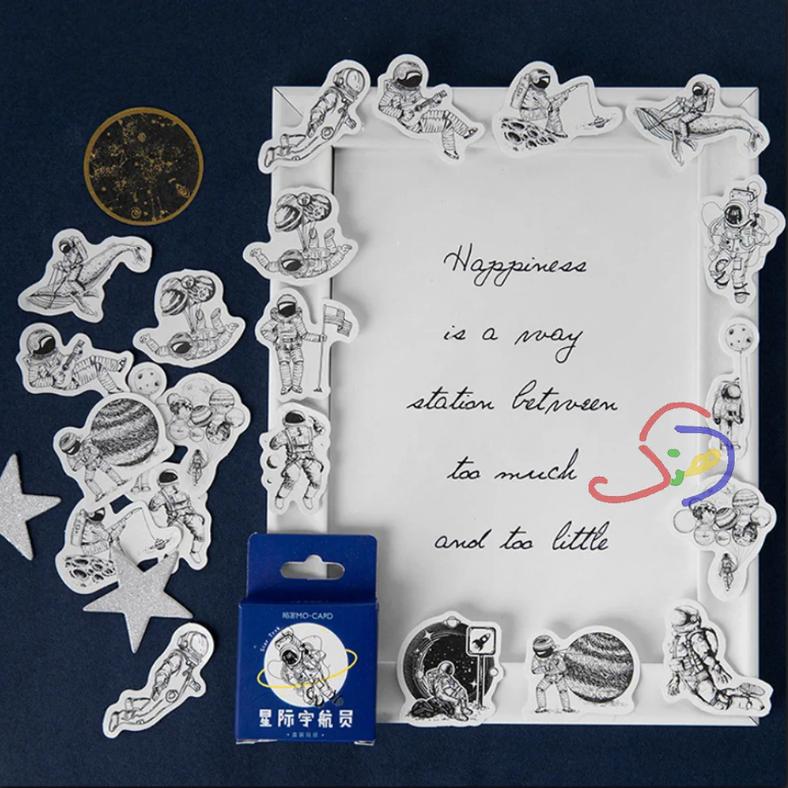 Happiness
is a way
station between
too much
and too little
陌墨MO-CARD
Star Trek
星际宇航员